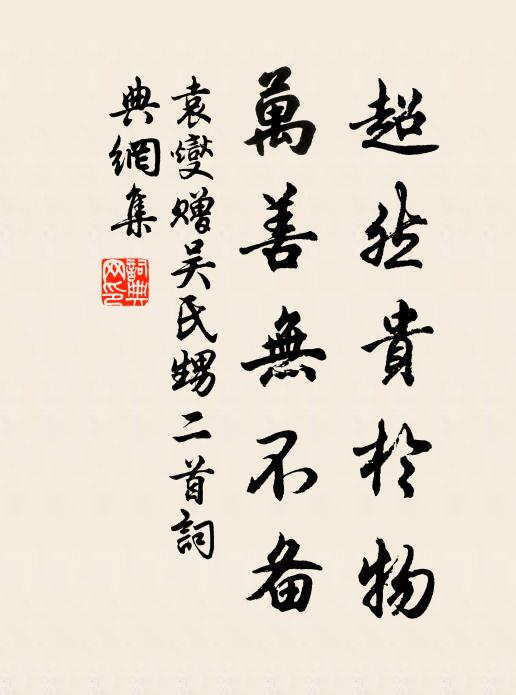 超然貴於物
萬善無不备
袁燮赠吴氏甥二首詞
典網集
詞典
网印